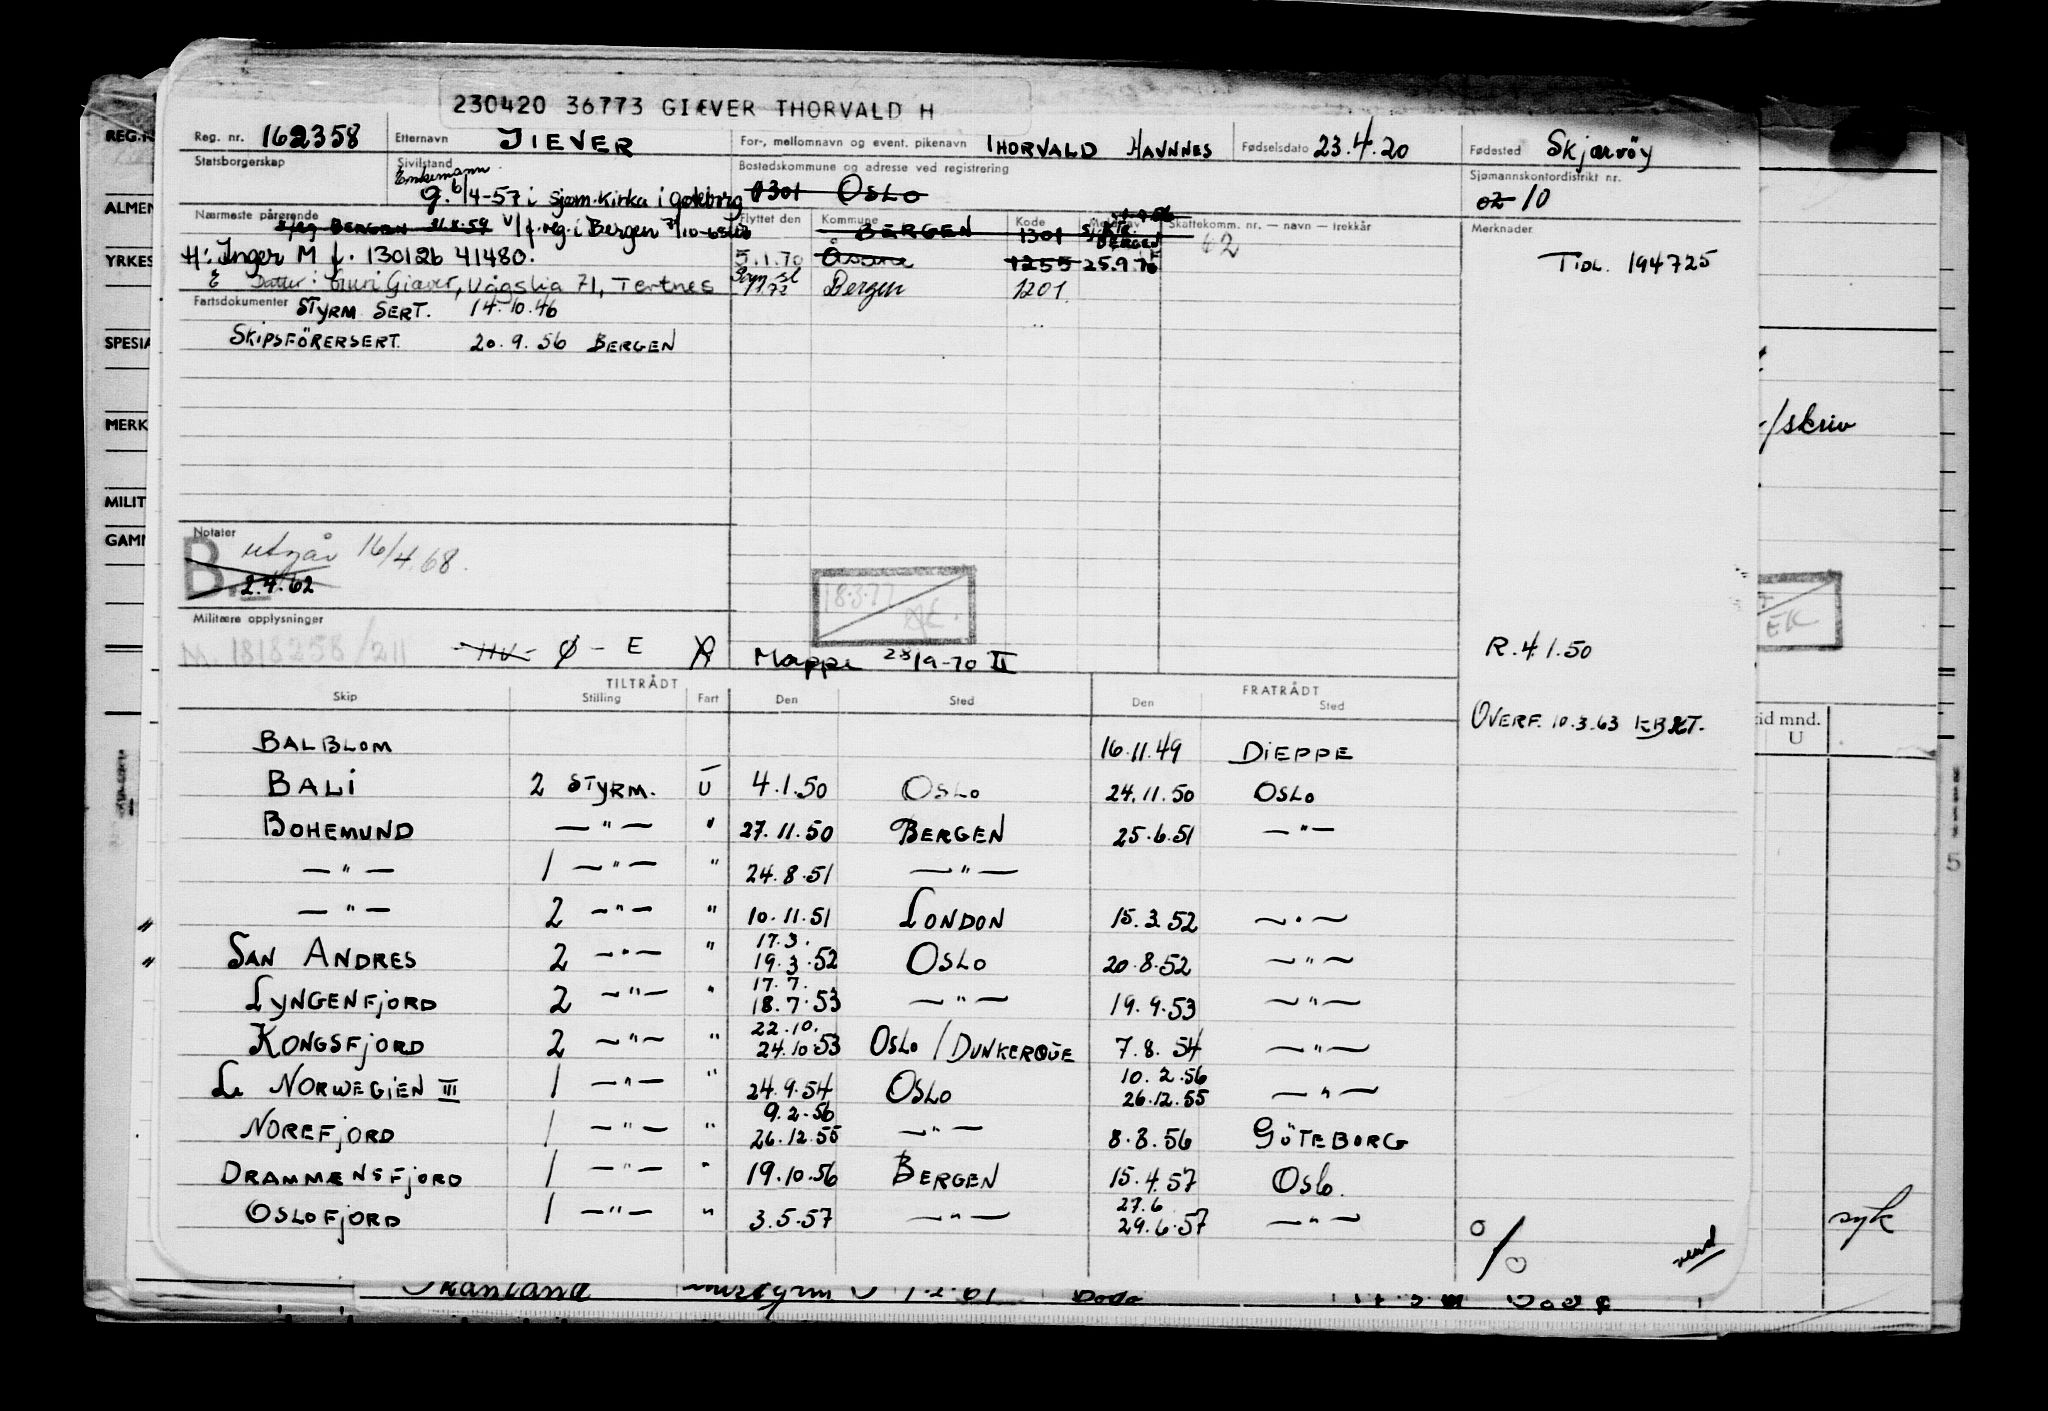 230420 36773 GIÆVER THORVALD H
Reg. nr. 162358 Etternavn JIEVER For-, mellomnavn og event. pikenavn THORVALD HAVNNES Fødselsdato 23.4.20 Fødested Skjærvöy
Statsborgerskap Sivilstand Enkemann Bostedskommune og adresse ved registrering Sjømannskontordistrikt nr.
g. 6/4-57 i sjøm.kirka i Gøteborg 0301 OSLO 02 10
Nærmeste pårørende Flyttet den Kommune Kode Skattekomm. nr. — navn — trekkår Merknader
BERGEN 21.8.59 v/f.reg. i Bergen BERGEN 1301 BERGEN 62
H: Inger M f. 130126 41480. 5.1.70 Åsane 1255 25.9.70 TIDL. 194725
E Datter: Guri Giæver, Vågslia 71, Tertnes Bergen 1201
Fartsdokumenter STYRM SERT. 14.10.46
SKIPSFÖRERSERT. 20.9.56 BERGEN
Notater
B. utgår 16/4.68.
2.4.62
18.3.77
Militære opplysninger
M. 1818258/211 HV Ø - E A Mappe 23/9-70 II
R. 4.1.50
TILTRÅDT FRATRÅDT
Skip Stilling Fart Den Sted Den Sted
OVERF. 10.3.63
BALBLOM 16.11.49 DIEPPE
BALI 2 STYRM. U 4.1.50 OSLO 24.11.50 OSLO
BOHEMUND —"— " 27.11.50 BERGEN 25.6.51 —"—
—"— 1 —"— " 24.8.51 —"—
—"— 2 —"— " 10.11.51 LONDON 15.3.52 —"—
17.3.
SAN ANDRES 2 —"— " 19.3.52 OSLO 20.8.52 —"—
17.7.
LYNGENFJORD 2 —"— " 18.7.53 —"— 19.9.53 —"—
22.10.
KONGSFJORD 2 —"— " 24.10.53 OSLO / DUNKERQUE 7.8.54 —"—
10.2.56
Le NORWEGIEN III 1 —"— " 24.9.54 OSLO 26.12.55 —"—
9.2.56
NOREFJORD 1 —"— " 26.12.55 —"— 8.8.56 GÖTEBORG
DRAMMENSFJORD 1 —"— " 19.10.56 BERGEN 15.4.57 OSLO.
27.6
OSLOFJORD 1 —"— " 3.5.57 —"— 29.6.57 —"—
o/o vend
REG.N
ALMEN
YRKES
SPESIA
MERK
MILIT
GAMM
/skriv
EK
tid mnd.
U
5
syk
Skånland